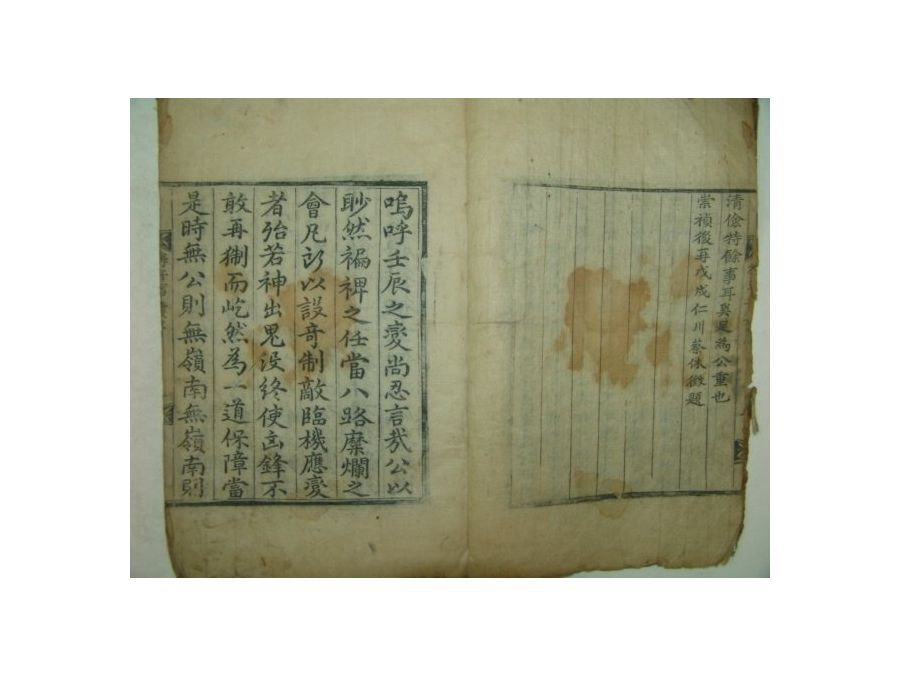 清儉特餘事耳奚足為公重也
崇禎後再戊戌仁川蔡休徵題
嗚呼壬辰之變尚忍言哉公以
眇然褊裨之任當八路糜爛之
會凡所以設奇制敵臨機應變
者殆若神出鬼没終使㐫鋒不
敢再猘而屹然為一道保障當
是時無公則無嶺南無嶺南則